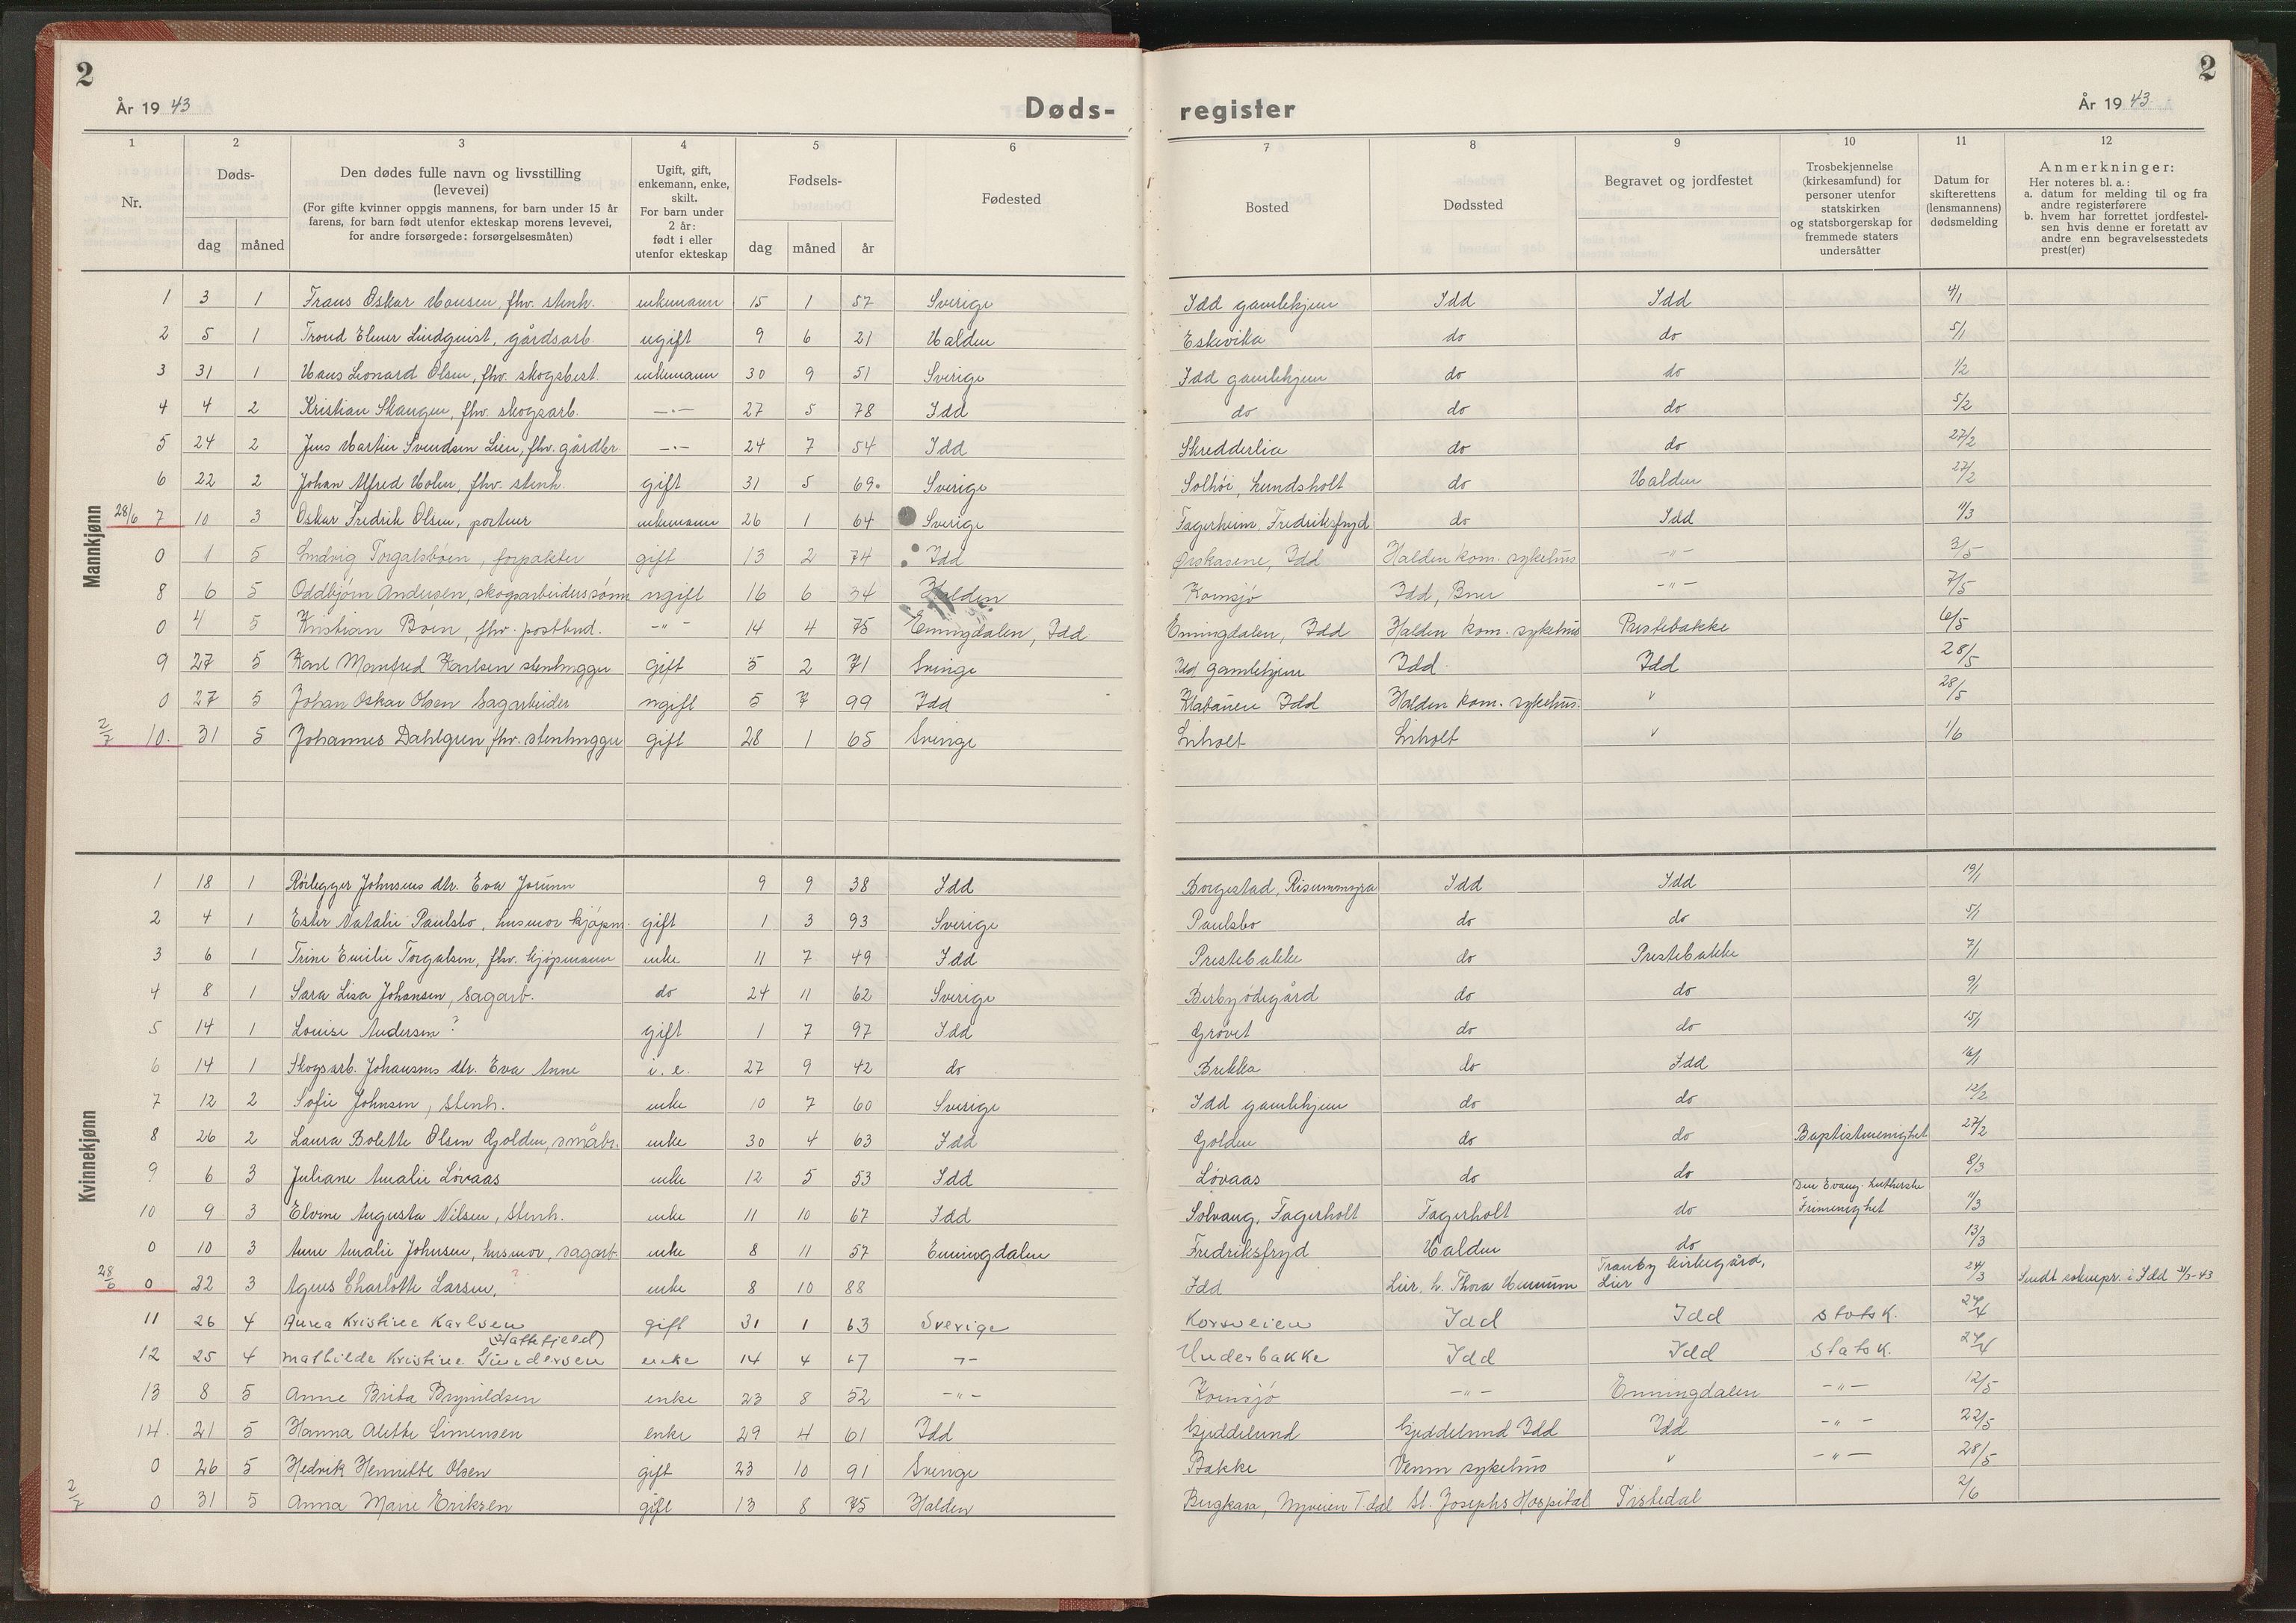 2
År 1943
Døds-
1
2
3
4
5
6
Nr.
Døds-
dag
måned
Den dødes fulle navn og livsstilling
(levevei)
(For gifte kvinner oppgis mannens, for barn under 15 år
farens, for barn født utenfor ekteskap morens levevei,
for andre forsørgede: forsørgelsesmåten)
Ugift, gift,
enkemann, enke,
skilt.
For barn under
2 år:
født i eller
utenfor ekteskap
Fødsels-
dag
måned
år
Fødested
register
År 1943
2
7
8
9
10
11
12
Bosted
Dødssted
Begravet og jordfestet
Trosbekjennelse
(kirkesamfund) for
personer utenfor
statskirken
og statsborgerskap for
fremmede staters
undersåtter
Datum for
skifterettens
(lensmannens)
dødsmelding
Anmerkninger:
Her noteres bl. a.:
a. datum for melding til og fra
andre registerførere
b. hvem har forrettet jordfestel-
sen hvis denne er foretatt av
andre enn begravelsesstedets
prest(er)
Mannkjønn
1 3 1 Frans Oskar Hansen, fhv. stenh. enkemann 15 1 57 Sverige Idd gamlehjem Idd Idd 4/1
2 5 1 Trond Elmer Lindquist, gårdsarb. ugift 9 6 21 Halden Eskevika do do 5/1
3 31 1 Hans Leonard Olsen, fhv. skogsbest. enkemann 30 9 51 Sverige Idd gamlehjem do do 1/2
4 4 2 Kristian Skaugen, fhv. skogsarb. —·— 27 5 78 Idd do do do 5/2
5 24 2 Jens Martin Svendsen Lien, fhv. gårdbr. —·— 24 7 54 Idd Skredderlia do do 27/2
6 22 2 Johan Alfred Holm, fhv. stenh. gift 31 5 69. Sverige Solhöi, Lundsholt do Halden 27/2
28/6 7 10 3 Oskar Fredrik Olsen, portner enkemann 26 1 64 Sverige Fagerheim, Fredriksfryd do Idd 11/3
0 1 5 Ludvig Torgalsböen, forpakter gift 13 2 74 Idd Ørskasene, Idd Halden kom. sykehus —"— 3/5
8 6 5 Oddbjörn Andersen, skogsarbeiderssönn ugift 16 6 34 Halden Kornsjö Idd, —"— 7/5
0 4 5 Kristian Böen, fhv. postbud. —"— 14 4 75 Enningdalen, Idd Enningdalen, Idd Halden kom. sykehus Prestebakke 6/5
9 27 5 Karl Manfred Karlsen stenhugger gift 5 2 71 Sverige Idd gamlehjem Idd Idd 28/5
0 27 5 Johan Oskar Olsen Sagarbeider ugift 5 7 99 Idd Idd Halden kom. sykehus. " 28/5
2/7 10. 31 5 Johannes Dahlgren fhv. stenhugger gift 28 1 65 Sverige Liholt Liholt " 1/6
Kvinnekjønn
1 18 1 Rörlegger Johnsens dtr. Eva Jorunn 9 9 38 Idd Borgestad, Risummyra Idd Idd 19/1
2 4 1 Ester Natalie Paulsbo, husmor kjöpm. gift 1 3 93 Sverige Paulsbo do do 5/1
3 6 1 Trine Emilie Torgalsen, fhv. kjöpmann enke 11 7 49 Idd Prestebakke do Prestebakke 7/1
4 8 1 Sara Lisa Johansen, sagarb. do 24 11 62 Sverige Berby ödegård do do 9/1
5 14 1 Louise Andersen? gift 1 7 97 Idd Grövet do do 15/1
6 14 1 Skogsarb. Johansens dtr. Eva Anne i. e. 27 9 42 do Brekka do Idd 16/1
7 12 2 Sofie Johnsen, stenh. enke 10 7 60 Sverige Idd gamlehjem do do 12/2
8 26 2 Laura Bolette Olsen Golden, småbr. enke 30 4 63 Idd Golden do do Baptistmenighet 27/2
9 6 3 Juliane Amalie Lövaas enke 12 5 53 Idd Lövaas do do 8/3
10 9 3 Elvine Augusta Nilsen, stenh. enke 11 10 67 Idd Solvang, Fagerholt Fagerholt do Den Evang. Lutherske Frimenighet 11/3
0 10 3 Anne Amalie Johnsen, husmor, sagarb. enke 8 11 57 Enningdalen Fredriksfryd Halden do 13/3
28/6 0 22 3 Agnes Charlotte Larsen, ? enke 8 10 88 Idd Lier, h. Thora Tranby kirkegård, Lier 24/3 Sendt soknepr. i Idd 31/3-43
11 26 4 Anna Kristine Karlsen gift 31 1 63 Sverige Korsveien Idd Idd statsk. 27/4
(Hattefjeld)
12 25 4 Mathilde Kristine Gundersen enke 14 4 67 —"— Underbakke Idd Idd statsk. 27/4
13 8 5 Anne Brita Brynildsen enke 23 8 52 —"— Kornsjö —"— Enningdalen —"— 12/5
14. 21 5 Hanna Alette Simensen enke 29 4 61 Idd Gjeddelund Gjeddelund Idd Idd —"— 22/5
0 26 5 Hedvik Henriette Olsen gift 23 10 91 Sverige Bakke Venm sykehus " —"— 28/5
2/7 0 31 5 Anna Marie Eriksen gift 13 8 75 Halden Bergkasa, Nyveien T.dal St. Josephs Hospital Tistedal 2/6